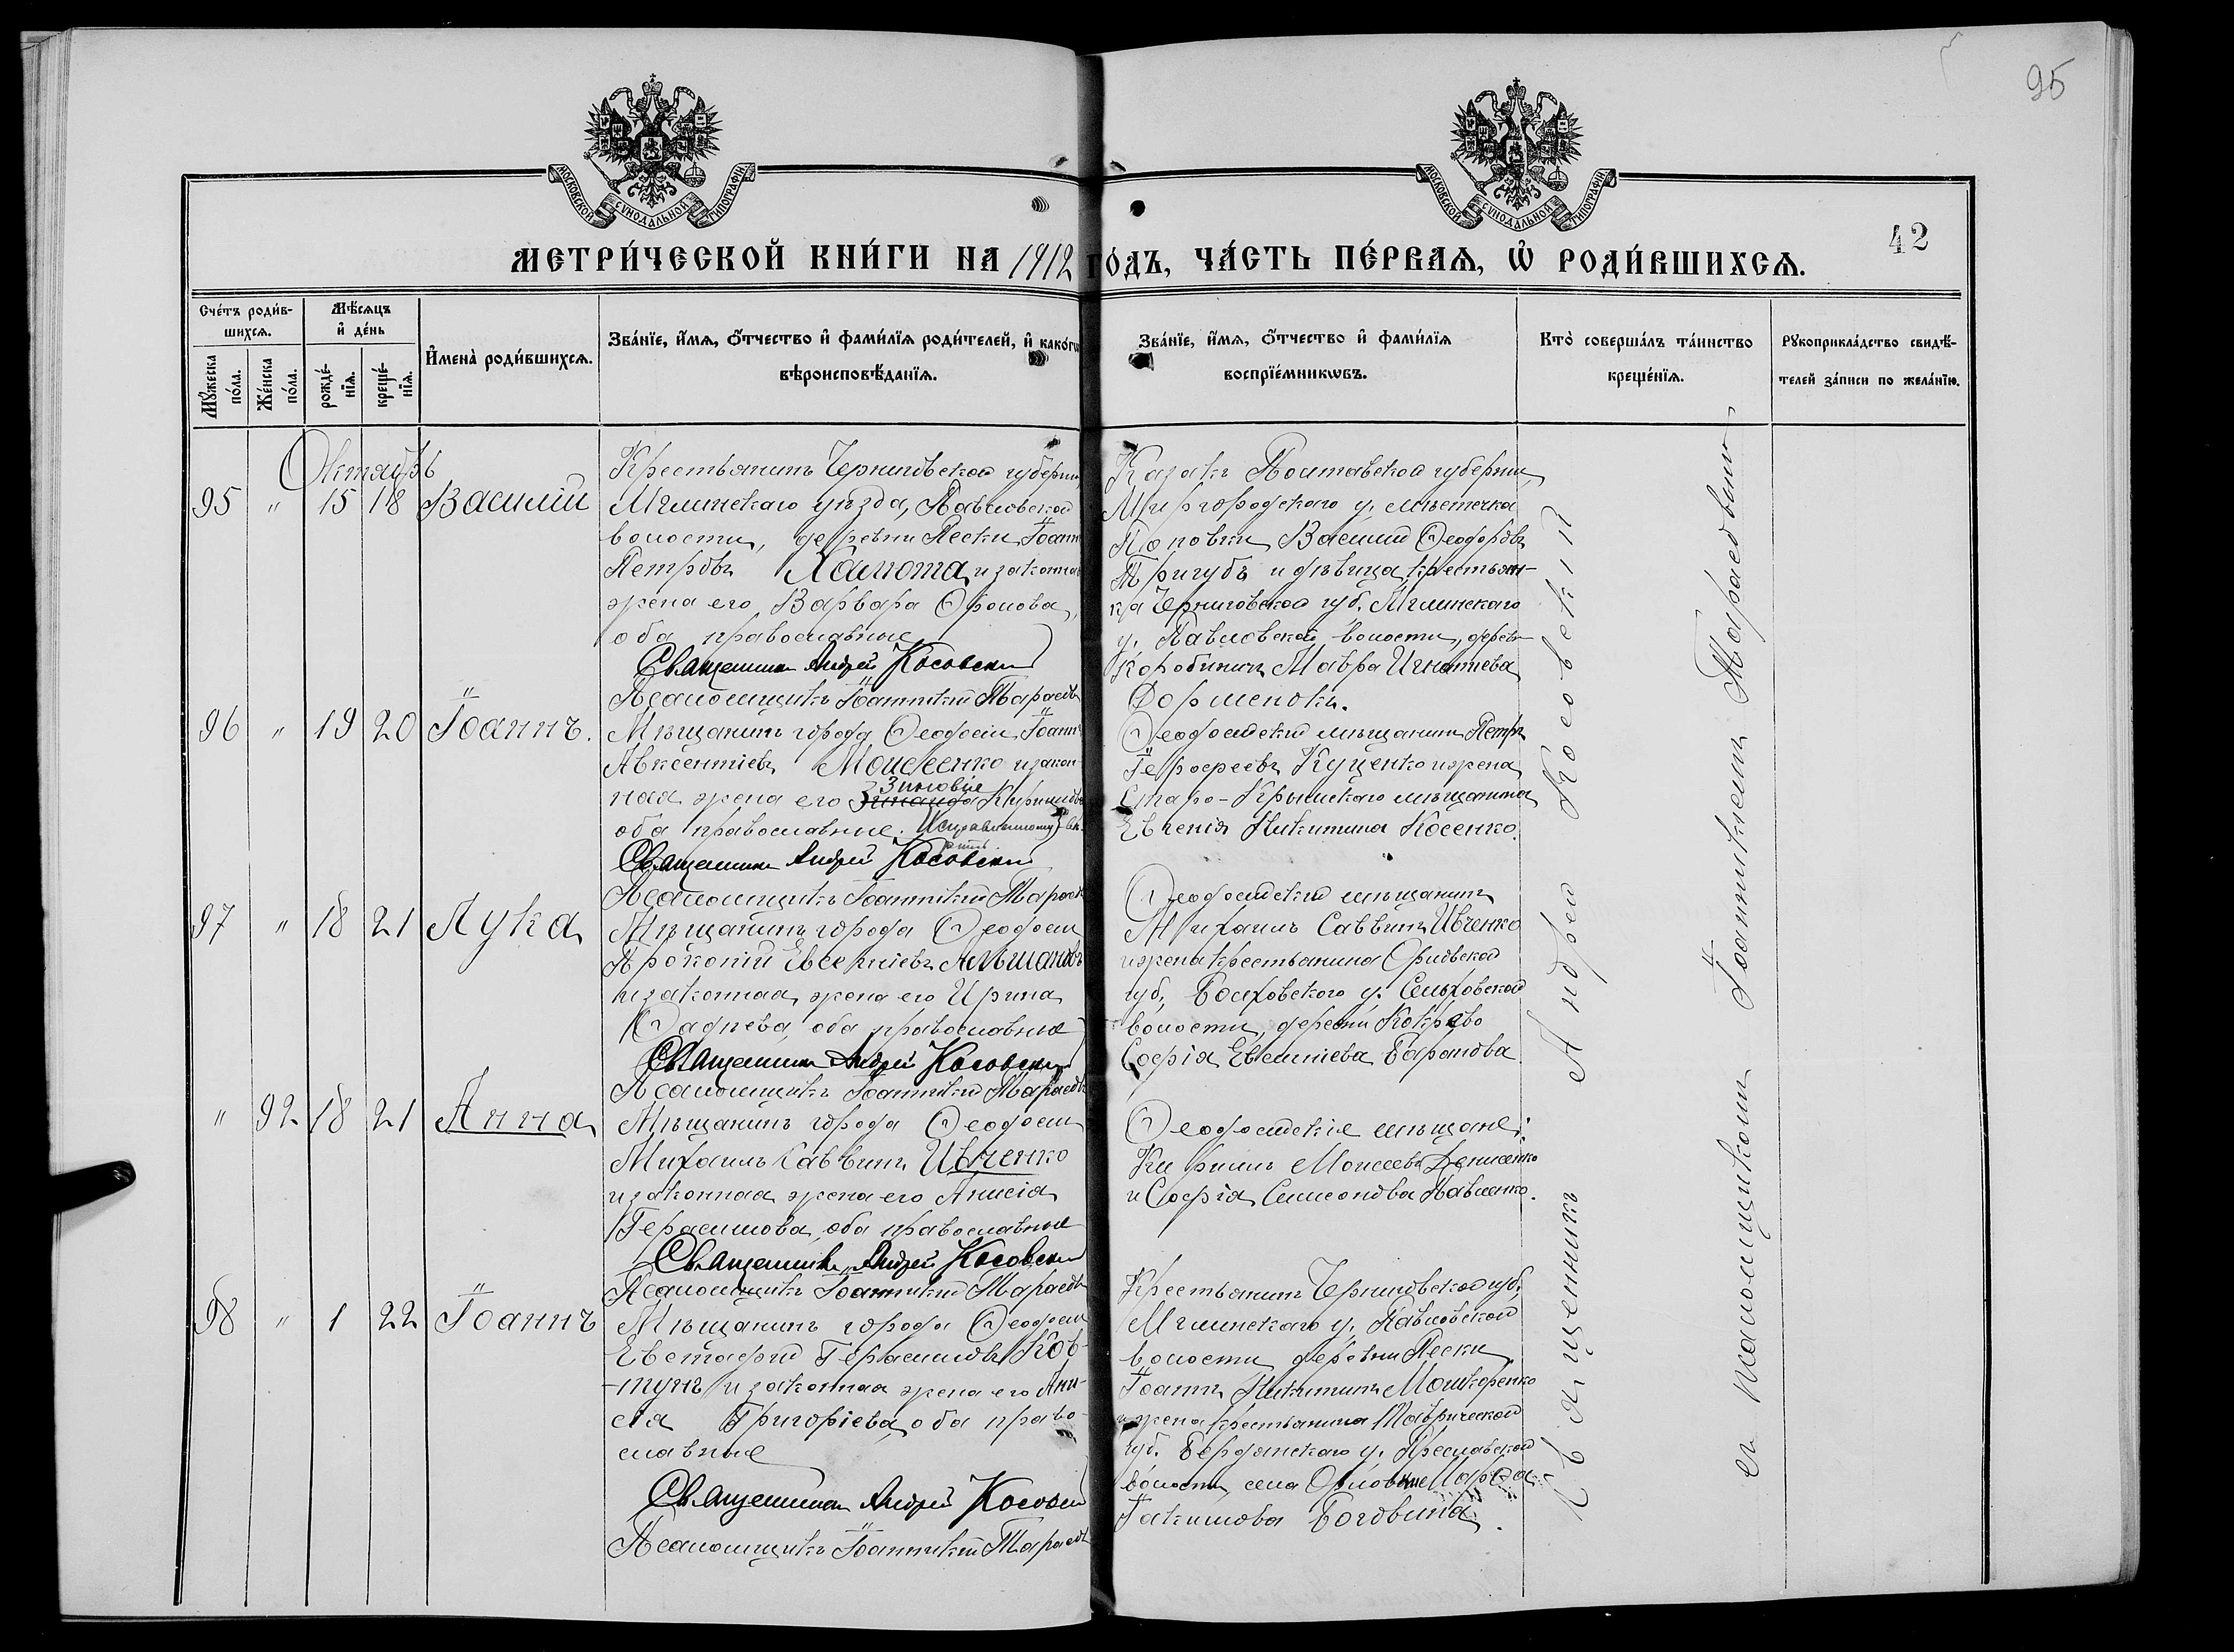 95
МОСКОВСКОЙ СѴНОДАЛЬНОЙ ТИПОГРАФІИ
МОСКОВСКОЙ СѴНОДАЛЬНОЙ ТИПОГРАФІИ
42
МЕТРИ́ЧЕСКОЙ КНИ́ГИ НА 1912 ГО́ДЪ, ЧА́СТЬ ПЕ́РВАѦ, Ѡ҆ РОДИ́ВШИХСѦ.
Сче́тъ роди́в-
шихсѧ.
Мѣ́сѧцъ
и҆ де́нь
Мꙋ́жеска по́ла.
Же́нска по́ла.
рожде́-нїѧ.
креще́-нїѧ.
И҆мена̀ роди́вшихсѧ.
Зва́нїе, и҆́мѧ, ѻ҆́тчество и҆ фами́лїѧ роди́телей, и҆ како́гѡ
вѣроисповѣ́данїѧ.
Зва́нїе, и҆́мѧ, ѻ҆́тчество и҆ фами́лїѧ
воспрїе́мникѡвъ.
Кто̀ соверша́лъ та́инство
креще́нїѧ.
Рꙋкоприкла́дство свидѣ́-
телей за́писи по жела́нїю.
Октябрь
95 " 15 18 Василий
Крестьянинъ Черниговской губернии
Мглинскаго уѣзда, Павловской
волости, деревни Пески Іоаннъ
Петровъ Хамота и законная
жена его Варвара Фролова,
оба православные
Священникъ Андрей Косовский
Псаломщикъ Іоанникий Тараевъ
Казакъ Полтавской губернии,
Миргородскаго у. мѣстечка
Поповки Василий Феодоровъ
Пригубъ и дѣвица крестьян-
ка Черниговской губ. Мглинскаго
у. Павловской волости, дерев.
Коробинич Мавра Игнатиева
96 " 19 20 Іоаннъ.
Мѣщанинъ города Феодосіи Іоаннъ
Авксентіевъ Моисеенко и закон-
ная жена его Зиновіе
оба православные. Исправленному вѣ-
рить.
Священникъ Андрей Косовский
Псаломщикъ Іоанникий Тараевъ
Феодосийский мѣщанинъ Петръ
Куценко и жена
Старо-Крымскаго мѣщанина
Евгенія Никитина Косенко.
97 " 18 21 Лука
Мѣщанинъ города Феодосіи
Прокопий Евсевиіевъ
и законная жена его Ирина
Фадѣева, оба православные
Священникъ Андрей Косовский
Псаломщикъ Іоанникий Тараевъ
Феодосийский мѣщанинъ
Михаилъ Саввинъ Ивченко
и жена крестьянина Орловской
губ, Болховского у. Сельховской
волости, деревни
Софія Баранова
" 92 18 21 Анна
Мѣщанинъ города Феодосіи
Михаилъ Саввинъ Ивченко
и законная жена его Анисія
Герасимова, оба православные
Священникъ Андрей Косовский
Псаломщикъ Іоанникий Тараевъ
Феодосийскіе мѣщане:
Кириллъ Моисеевъ Денисенко
и Софія Симеонова Павленко.
98 " 1 22 Іоаннъ
Мѣщанинъ города Феодосіи
Евстафий Герасимовъ Ков-
тунъ и законная жена его Ани-
сія Григоріева, оба право-
славные
Священникъ Андрей Косовский
Псаломщикъ Іоанникий Тараевъ
Крестьянинъ Черниговской губ,
Мглинскаго у. Павловской
волости деревни Пески
Іоаннъ Никитинъ Мошкоренко
и жена крестьянина Таврической
губ. Бердянскаго у. Преславской
волости, села
Іакимова Боговина.
Священникъ Андрей Косовский
съ псаломщикомъ Іоанникиемъ Тараевымъ